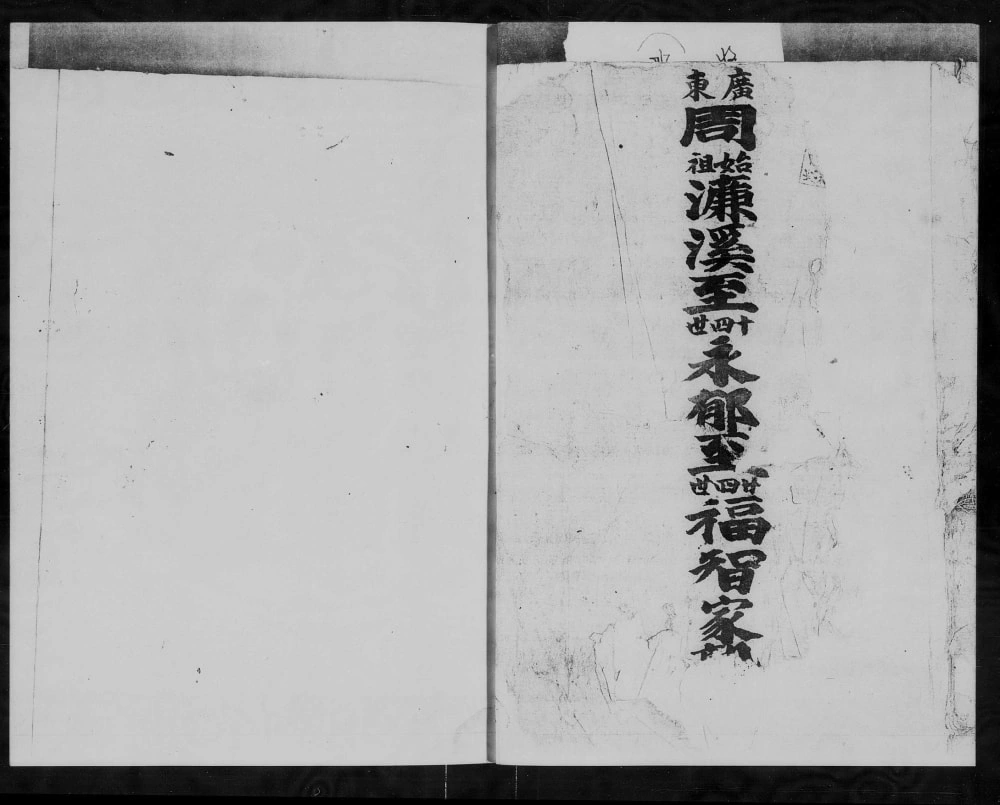 廣東
周
始祖
濂溪至
十四世
永郁至
廿四世
福智家